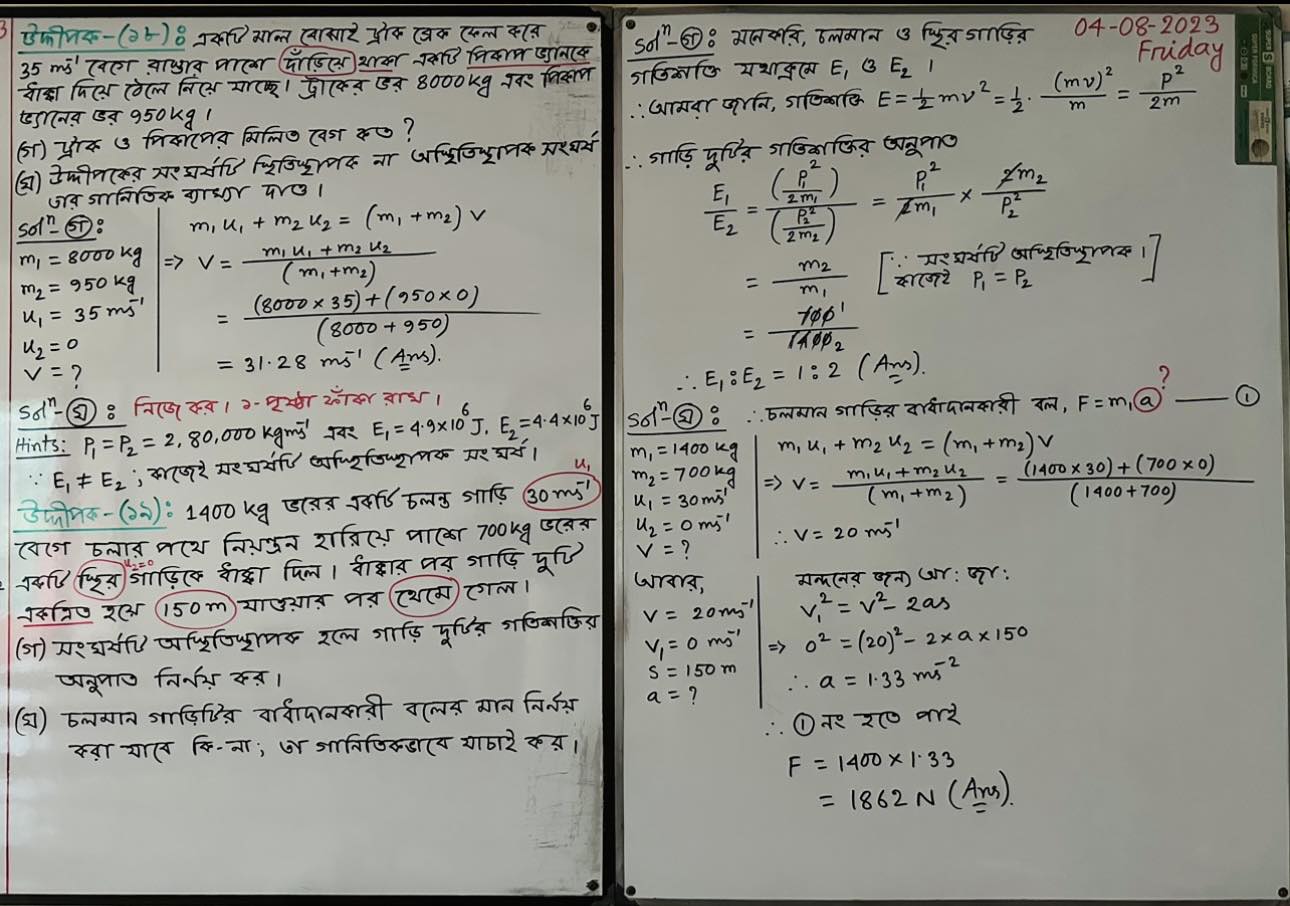 উদ্দীপক-(১৮): একটি মাল বোঝাই ট্রাক ব্রেক ফেল করে
35 ms⁻¹ বেগে রাস্তার পাশে দাঁড়িয়ে থাকা একটি পিকাপ ভ্যানকে
ধাঁক্কা দিয়ে ঠেলে নিয়ে যাচ্ছে। ট্রাকের ভর 8000kg এবং পিকাপ
ভ্যানের ভর 950kg।
(গ) ট্রাক ও পিকাপের মিলিত বেগ কত?
(ঘ) উদ্দীপকের সংঘর্ষটি স্থিতিস্থাপক না অস্থিতিস্থাপক সংঘর্ষ
তার গানিতিক ব্যাখ্যা দাও।
Solⁿ-(গ):
m₁ = 8000 kg
m₂ = 950 kg
u₁ = 35 ms⁻¹
u₂ = 0
v = ?
m₁u₁ + m₂u₂ = (m₁+m₂) v
=> v = (m₁u₁+m₂u₂) / (m₁+m₂)
= ((8000×35)+(950×0)) / (8000+950)
= 31.28 ms⁻¹ (Ans).
Solⁿ-(ঘ): নিজে কর। ১-পৃষ্ঠা ফাঁকা রাখ।
Hints: P₁=P₂ = 2,80,000 kgms⁻¹ এবং E₁=4.9×10⁶J, E₂=4.4×10⁶J
∵ E₁ ≠ E₂ ; কাজেই সংঘর্ষটি অস্থিতিস্থাপক সংঘর্ষ।
উদ্দীপক-(১৯): 1400 kg ভরের একটি চলন্ত গাড়ি 30 ms⁻¹ u₁
বেগে চলার পথে নিয়ন্ত্রন হারিয়ে পাশে 700kg ভরের
একটি স্থির u₂=0 গাড়িকে ধাঁক্কা দিল। ধাঁক্কার পর গাড়ি দুটি
একত্রিত হয়ে 150m যাওয়ার পর থেমে গেল।
(গ) সংঘর্ষটি অস্থিতিস্থাপক হলে গাড়ি দুটির গতিশক্তির
অনুপাত নির্নয় কর।
(ঘ) চলমান গাড়িটির বাধাদানকারী বলের মান নির্নয়
করা যাবে কি-না; তা গানিতিকভাবে যাচাই কর।
04-08-2023
Friday
Solⁿ-(গ): মনেকরি, চলমান ও স্থির গাড়ির
গতিশক্তি যথাক্রমে E₁ ও E₂ ।
∴ আমরা জানি, গতিশক্তি E = ½mv² = ½·(mv)²/m = P²/2m
∴ গাড়ি দুটির গতিশক্তির অনুপাত
E₁/E₂ = (P₁²/2m₁)/(P₂²/2m₂) = P₁²/2m₁ × 2m₂/P₂²
= m₂/m₁ [∵ সংঘর্ষটি অস্থিতিস্থাপক।
কাজেই P₁ = P₂]
= 700 1 / 1400 2
∴ E₁:E₂ = 1:2 (Ans).
Solⁿ-(ঘ): ∴ চলমান গাড়ির বাধাদানকারী বল, F=m₁a ? —— ①
m₁ = 1400 kg
m₂ = 700kg
u₁ = 30ms⁻¹
u₂ = 0 ms⁻¹
v = ?
m₁u₁ + m₂u₂ = (m₁+m₂)v
=> v = (m₁u₁+m₂u₂)/(m₁+m₂) = ((1400×30)+(700×0))/(1400+700)
∴ v = 20 ms⁻¹
আবার,
v = 20ms⁻¹
v₁ = 0 ms⁻¹
s = 150 m
a = ?
মন্দনের জন্য আ: জা:
v₁² = v² - 2as
=> 0² = (20)² - 2×a×150
∴ a = 1.33 ms⁻²
∴ ① নং হতে পাই
F = 1400×1.33
= 1862 N (Ans).